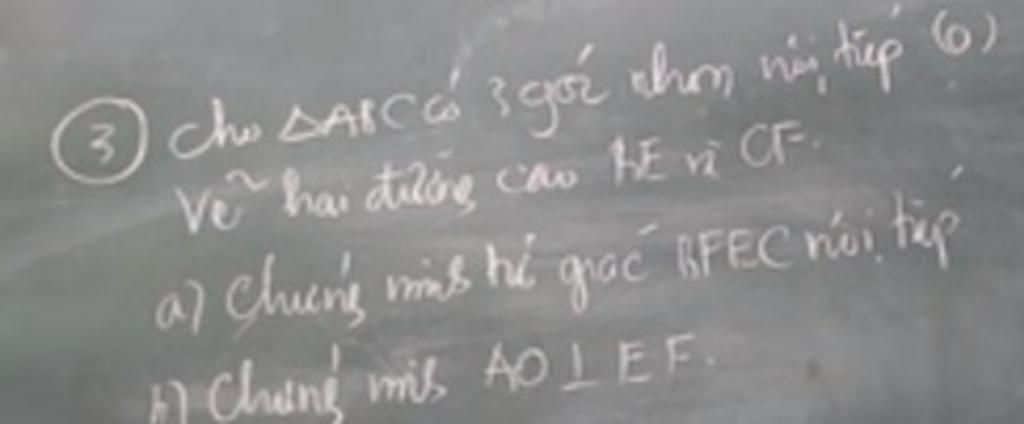 3 Cho △ABC có 3 góc nhọn nội tiếp (O)
Vẽ hai đường cao BE và CF.
a) Chứng minh tứ giác BFEC nội tiếp
b) Chứng minh AO ⊥ EF.